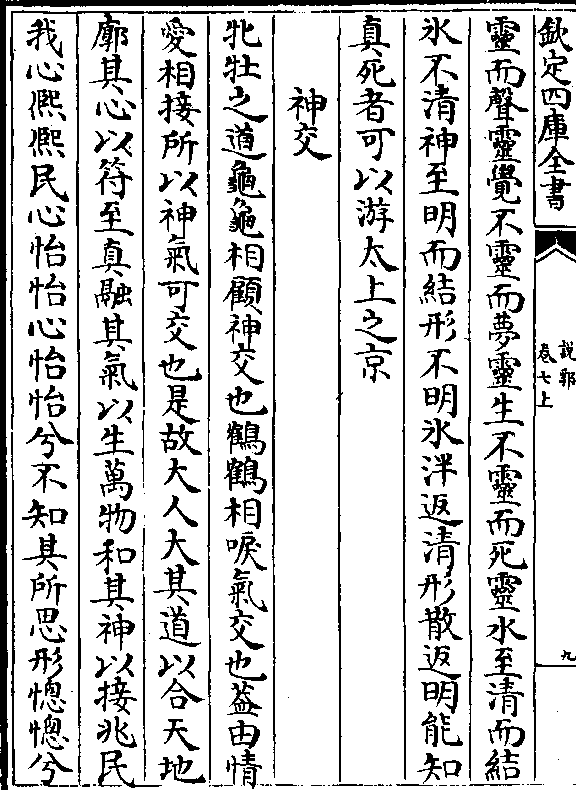 欽定四庫全書
說郛
卷七上
九
靈而聲靈覺不靈而夢靈生不靈而死靈水至清而結
氷不清神至明而結形不明氷泮返清形散返明能知
真死者可以游太上之京
神交
牝牡之道龜龜相顧神交也鶴鶴相唳氣交也葢由情
愛相接所以神氣可交也是故大人大其道以合天地
廓其心以符至真融其氣以生萬物和其神以接兆民
我心熈熈民心怡怡心怡怡兮不知其所思形惚惚兮